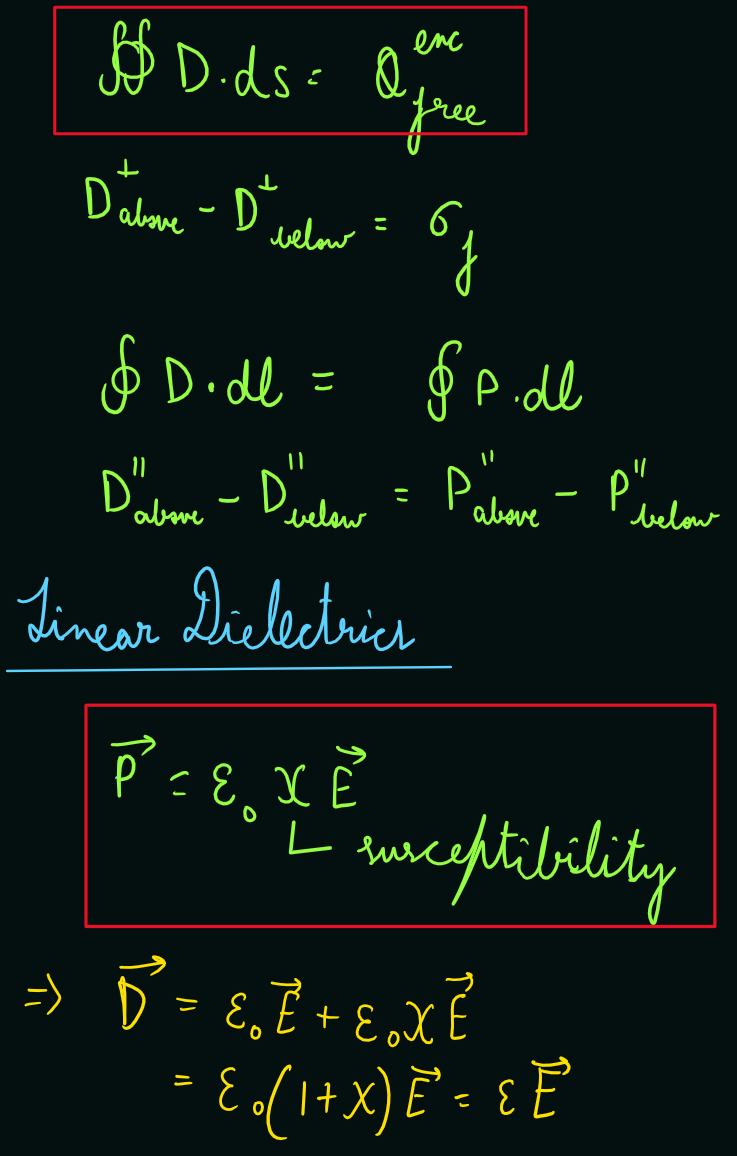 ∯ D·ds = Q^enc_free
D^⊥_above - D^⊥_below = σ_f
∮ D·dl = ∮ P·dl
D^∥_above - D^∥_below = P^∥_above - P^∥_below
Linear Dielectrics
P⃗ = ε₀ χ E⃗
susceptibility
⇒ D⃗ = ε₀ E⃗ + ε₀ χ E⃗
= ε₀(1+χ) E⃗ = ε E⃗